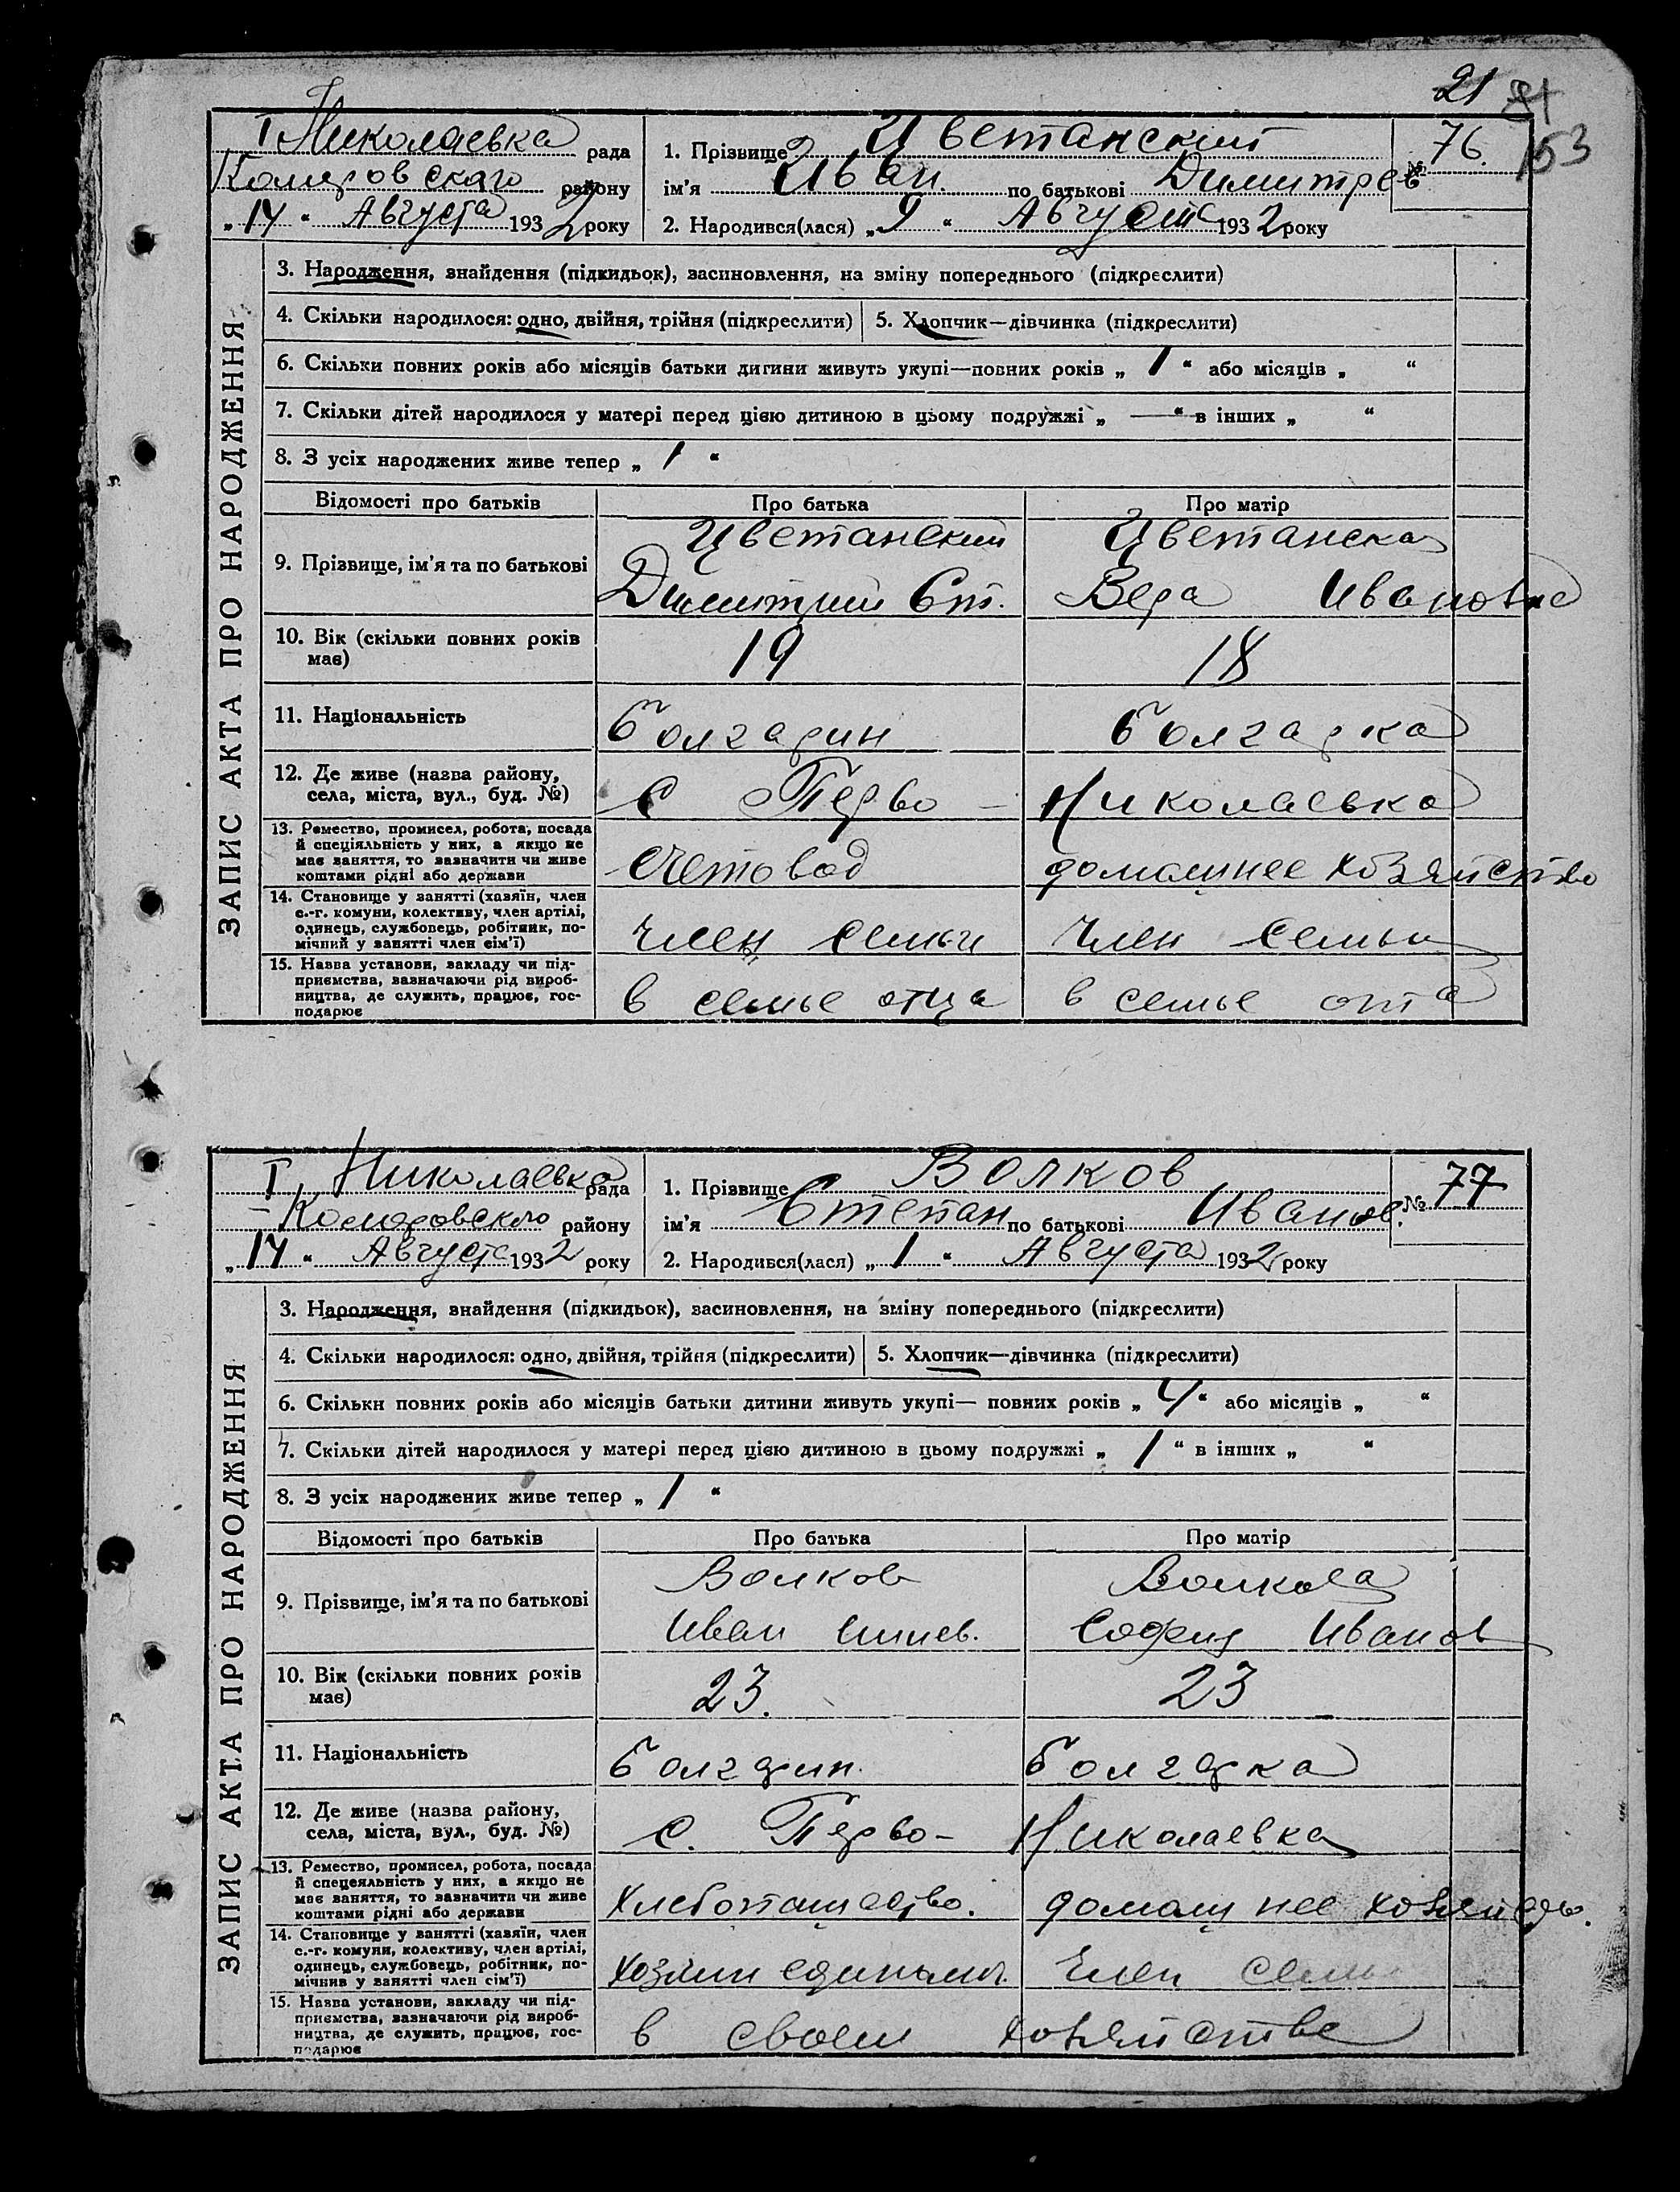 21
153
I Николаевка рада
Комировскаго району
„14“ Августа 1932 року
1. Прізвище Цветанский
ім'я Иван по батькові Димитрев
2. Народився(лася) „9“ Август 1932 року
№ 76.
ЗАПИС АКТА ПРО НАРОДЖЕННЯ
3. Народження, знайдення (підкидьок), засиновлення, на зміну попереднього (підкреслити)
4. Скільки народилося: одно, двійня, трійня (підкреслити)
5. Хлопчик—дівчинка (підкреслити)
6. Скільки повних років або місяців батьки дитини живуть укупі—повних років „ 1 “ або місяців „ “
7. Скільки дітей народилося у матері перед цією дитиною в цьому подружжі „ — “ в інших „ “
8. З усіх народжених живе тепер „ 1 “
Відомості про батьків Про батька Про матір
9. Прізвище, ім'я та по батькові
Цветанский
Димитрий Ст.
Цветанская
Вера Ивановна
10. Вік (скільки повних років
має)
19 18
11. Національність болгарин болгарка
12. Де живе (назва району,
села, міста, вул., буд. №)
с Перво - Николаевка
13. Ремество, промисел, робота, посада
й спеціяльність у них, а якщо не
має заняття, то зазначити чи живе
коштами рідні або держави
счетовод домашнее хозяйство
14. Становище у занятті (хазяїн, член
с.-г. комуни, колективу, член артілі,
одинець, службовець, робітник, по-
мічний у занятті член сім'ї)
член семьи член семьи
15. Назва установи, закладу чи під-
приємства, зазначаючи рід вироб-
ництва, де служить, працює, гос-
подарює
в семье отца в семье отта
I Николаевка рада
Комаровского району
„14“ Августа 1932 року
1. Прізвище Волков
ім'я Степан по батькові Иванов.
2. Народився(лася) „1“ Августа 1932 року
№ 77
ЗАПИС АКТА ПРО НАРОДЖЕННЯ
3. Народження, знайдення (підкидьок), засиновлення, на зміну попереднього (підкреслити)
4. Скільки народилося: одно, двійня, трійня (підкреслити)
5. Хлопчик—дівчинка (підкреслити)
6. Скільки повних років або місяців батьки дитини живуть укупі— повних років „ 4 “ або місяців „ “
7. Скільки дітей народилося у матері перед цією дитиною в цьому подружжі „ 1 “ в інших „ “
8. З усіх народжених живе тепер „ 1 “
Відомості про батьків Про батька Про матір
9. Прізвище, ім'я та по батькові
Волков
Иван
Волкова
София Иванов
10. Вік (скільки повних років
має)
23. 23
11. Національність болгарин. болгарка
12. Де живе (назва району,
села, міста, вул., буд. №)
с. Перво- Николаевка
13. Ремество, промисел, робота, посада
й спецеяльність у них, а якщо не
має заняття, то зазначити чи живе
коштами рідні або держави
хлебопашество. домашнее хозяйство.
14. Становище у занятті (хазяїн, член
с.-г. комуни, колективу, член артілі,
одинець, службовець, робітник, по-
мічнив у занятті член сім'ї)
хозяин единолич. член семьи
15. Назва установи, закладу чи під-
приємства, зазначаючи рід вироб-
ництва, де служить, працює, гос-
подарює
в своем хозяйстве